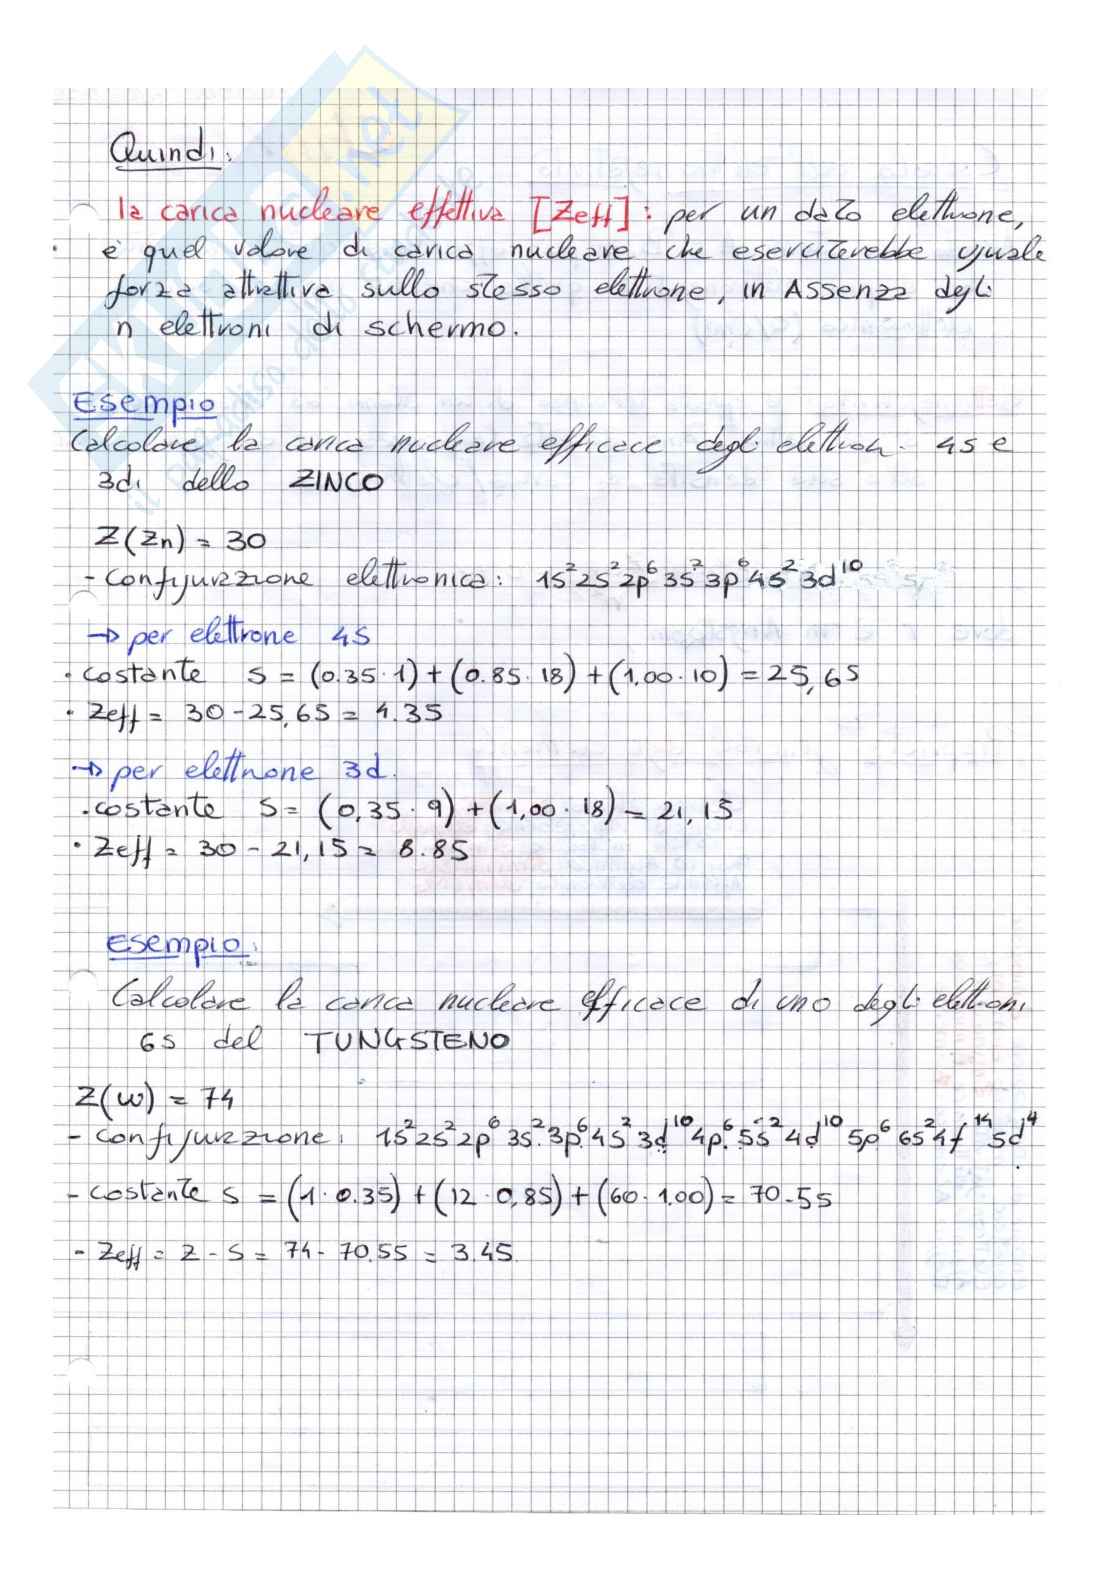 Quindi:
la carica nucleare effettiva [Zeff]: per un dato elettrone,
è quel valore di carica nucleare che eserciterebbe uguale
forza attrattiva sullo stesso elettrone, in Assenza degli
n elettroni di schermo.
Esempio
Calcolare la carica nucleare efficace degli elettron. 4s e
3d. dello ZINCO
Z(Zn) = 30
- configurazione elettronica: 1s² 2s² 2p⁶ 3s² 3p⁶ 4s² 3d¹⁰
→ per elettrone 4s
• costante S = (0.35·1)+(0.85·18)+(1.00·10) = 25,65
• Zeff = 30-25,65 = 4.35
→ per elettrone 3d.
• costante S = (0,35·9)+(1,00·18) = 21,15
• Zeff = 30 - 21,15 = 8.85
Esempio:
Calcolare la carica nucleare efficace di uno degli elettroni
6s del TUNGSTENO
Z(W) = 74
- configurazione: 1s² 2s² 2p⁶ 3s² 3p⁶ 4s² 3d¹⁰ 4p⁶ 5s² 4d¹⁰ 5p⁶ 6s² 4f¹⁴ 5d⁴
- costante S = (1·0.35)+(12·0,85)+(60·1.00) = 70.55
- Zeff = Z - S = 74 - 70.55 = 3.45